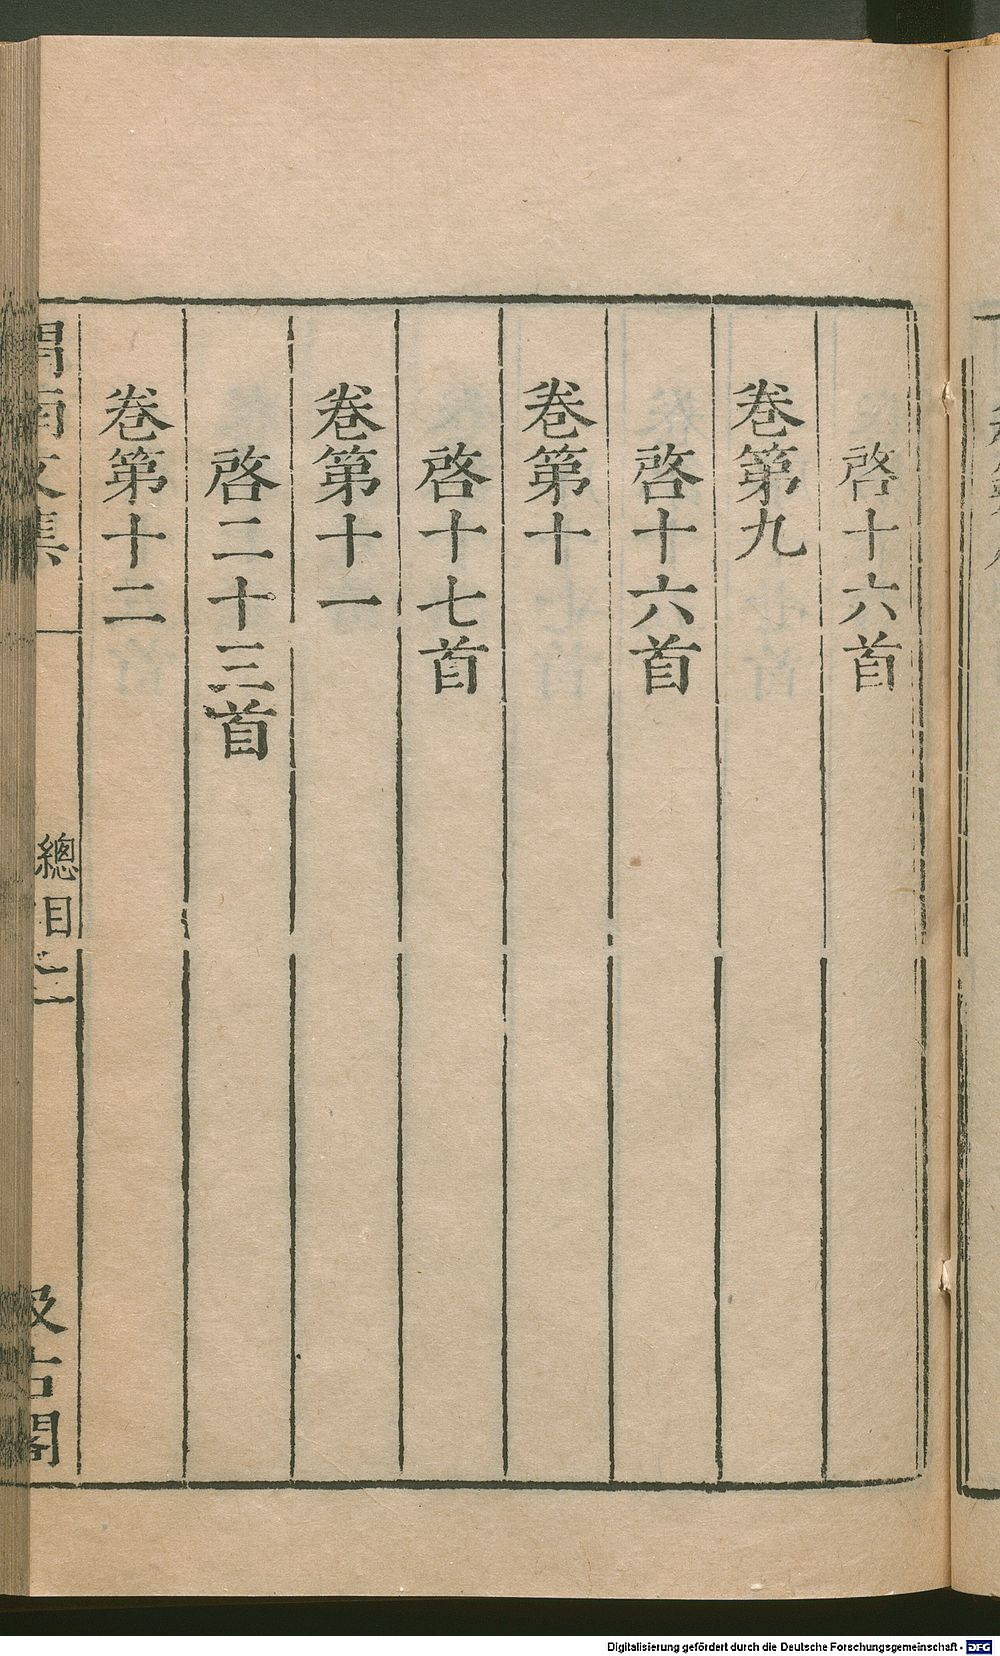 啓十六首
卷第九
啓十六首
卷第十
啓十七首
卷第十一
啓二十三首
卷第十二
渭南文集
總目
二
汲古閣
Digitalisierung gefördert durch die Deutsche Forschungsgemeinschaft - DFG